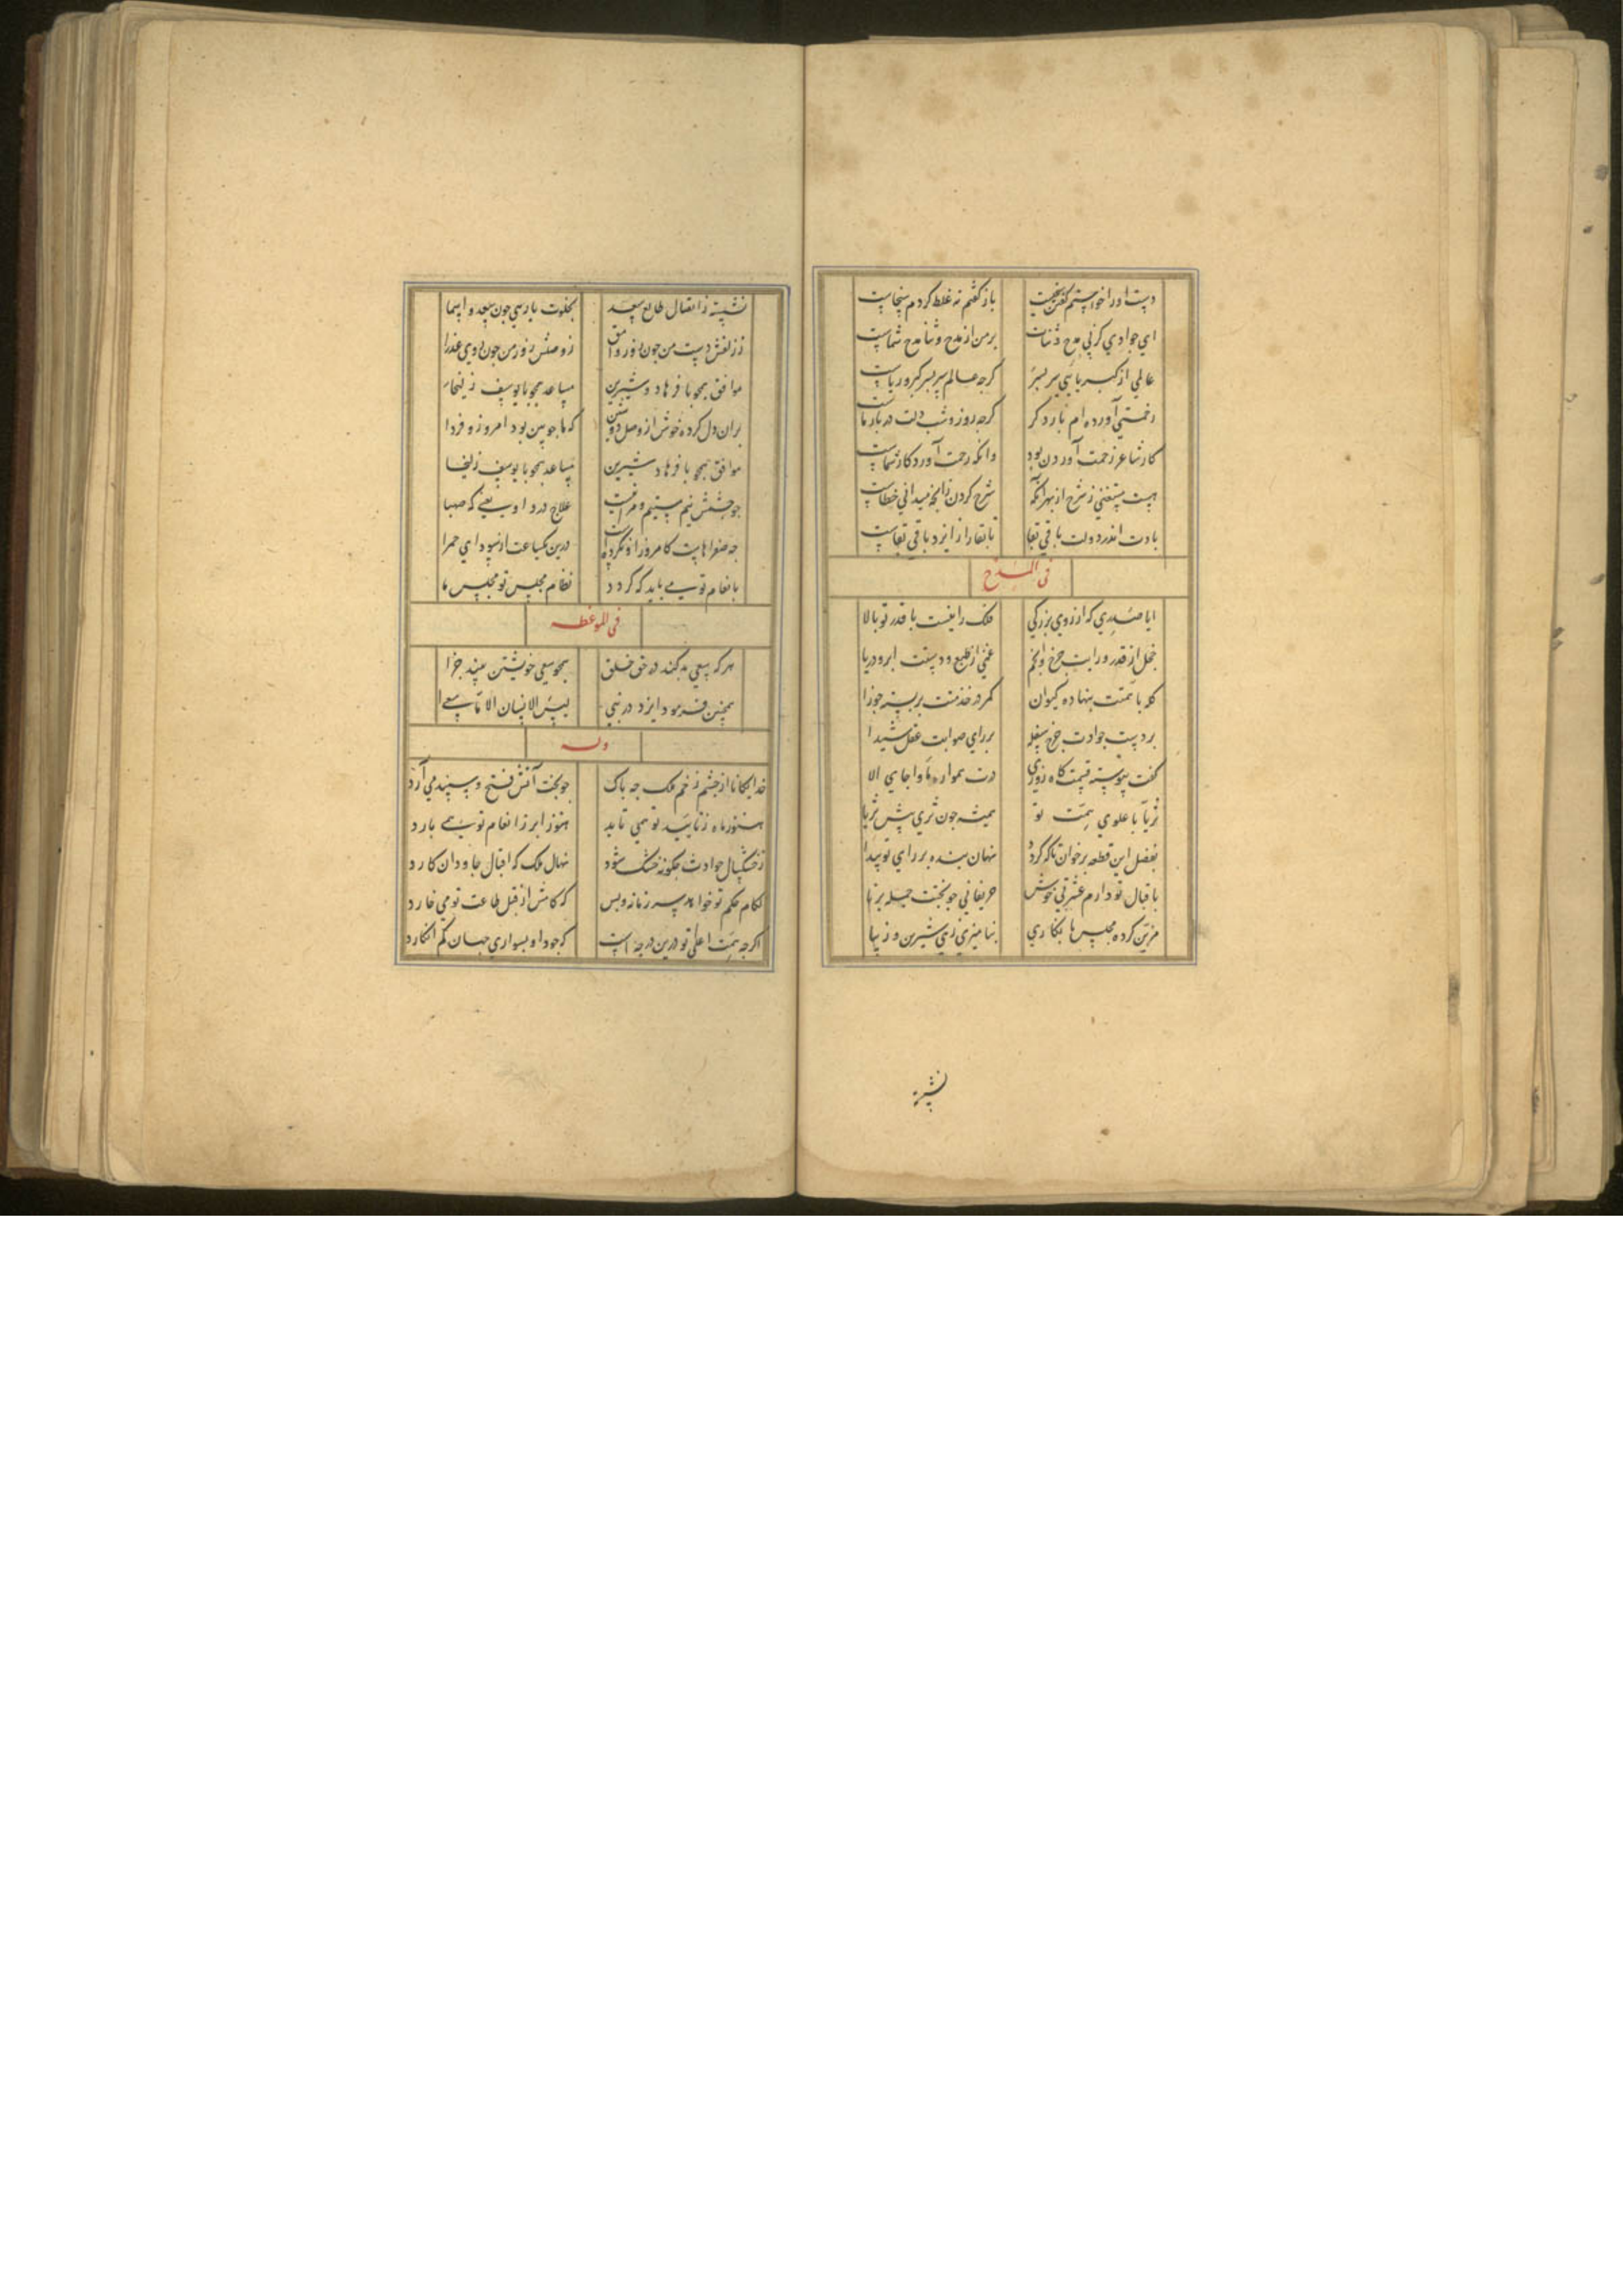 دست او را خواستم گفتن نخست باز گفتم نه غلط کردم سخاست
اي جوادي کز پي مدح و ثنات بر من از مدح و ثنا مدح شماست
عالمي از کبریایي سر بسر کرچه عالم سر بسر کبر و ریاست
زحمتي آورده ام بار دکر کرچه روز و شب دلت در بار ماست
کار شاعر زحمت آوردن بود وانکه رحمت آورد کار شماست
هست مستغني ز شرح از بهر آنکه شرح کردن زانچه میداني خطاست
بادت اندر دولت باقي بقا تا بقا را از ایزد باقي بقاست
في المدح
ایا صدري که از روي بزرکي فلک را نیست با قدر تو بالا
خجل از قدر و رایت چرخ و انجم غني از طبع و دستت ابر و دریا
کله با همتت بنهاده کیوان کمر در خدمتت بربسته جوزا
بر دست جوادت چرخ سفله بر راي صوابت عقل شیدا
کفت پیوسته قسمت کاه روزي درت همواره ماوا جاي الا
ثریا با علوي همت تو همیشه چون ثري پیش ثریا
بفضل این قطعه برخوان تاکه کردد نهان بنده بر راي تو پیدا
باقبال تو دارم عشرتي خوش حریفاني چو بختت جمله برنا
مزین کرده مجلس ها نکاري بنامیزد زهي شیرین و زیبا
نشسته
نشسته ز اتصال طالع سعد بخلوت با رهي چون سعد و اسما
ز زلفش دست من چون روز وامق ز وصلش روز من چون روي عذرا
موافق همچو با فرهاد و شیرین مساعد همچو با یوسف زلیخا
بر ان دل کرده خوش از وصل دوشین که ما چون بود امروز و فردا
موافق همچو با فرهاد شیرین مساعد همچو با یوسف زلیخا
چو چشمش نیم مستیم و علاج درد او یعني که صهبا
چه صفراهاست کامروز او نکردست درین یکساعت از سوداي حمرا
بانعام تو مي باید که کردد نظام مجلس تو مجلس ما
في الموعظه
هر که سعي بد کند در حق خلق همچو سعي خویشتن بیند جزا
همچنین فرمود ایزد در نبي لیس للانسان الا ما سعي
وله
خدایکانا از چشم زخم ملک چه باک چو بخت آتش فتح و سپند مي آرد
هنوز ماه ز تایید تو همي تابد هنوز ابر ز انعام تو همي بارد
ز خشکسال حوادث چکونه خشک شود نهال ملک که اقبال جاودان کارد
لکام حکم تو خواهد سر زمانه و بس که کامش از قبل طاعت تو مي خارد
اکرچه همت اعلي تو درین درجه است که جود او بسواري جهان کم انکارد